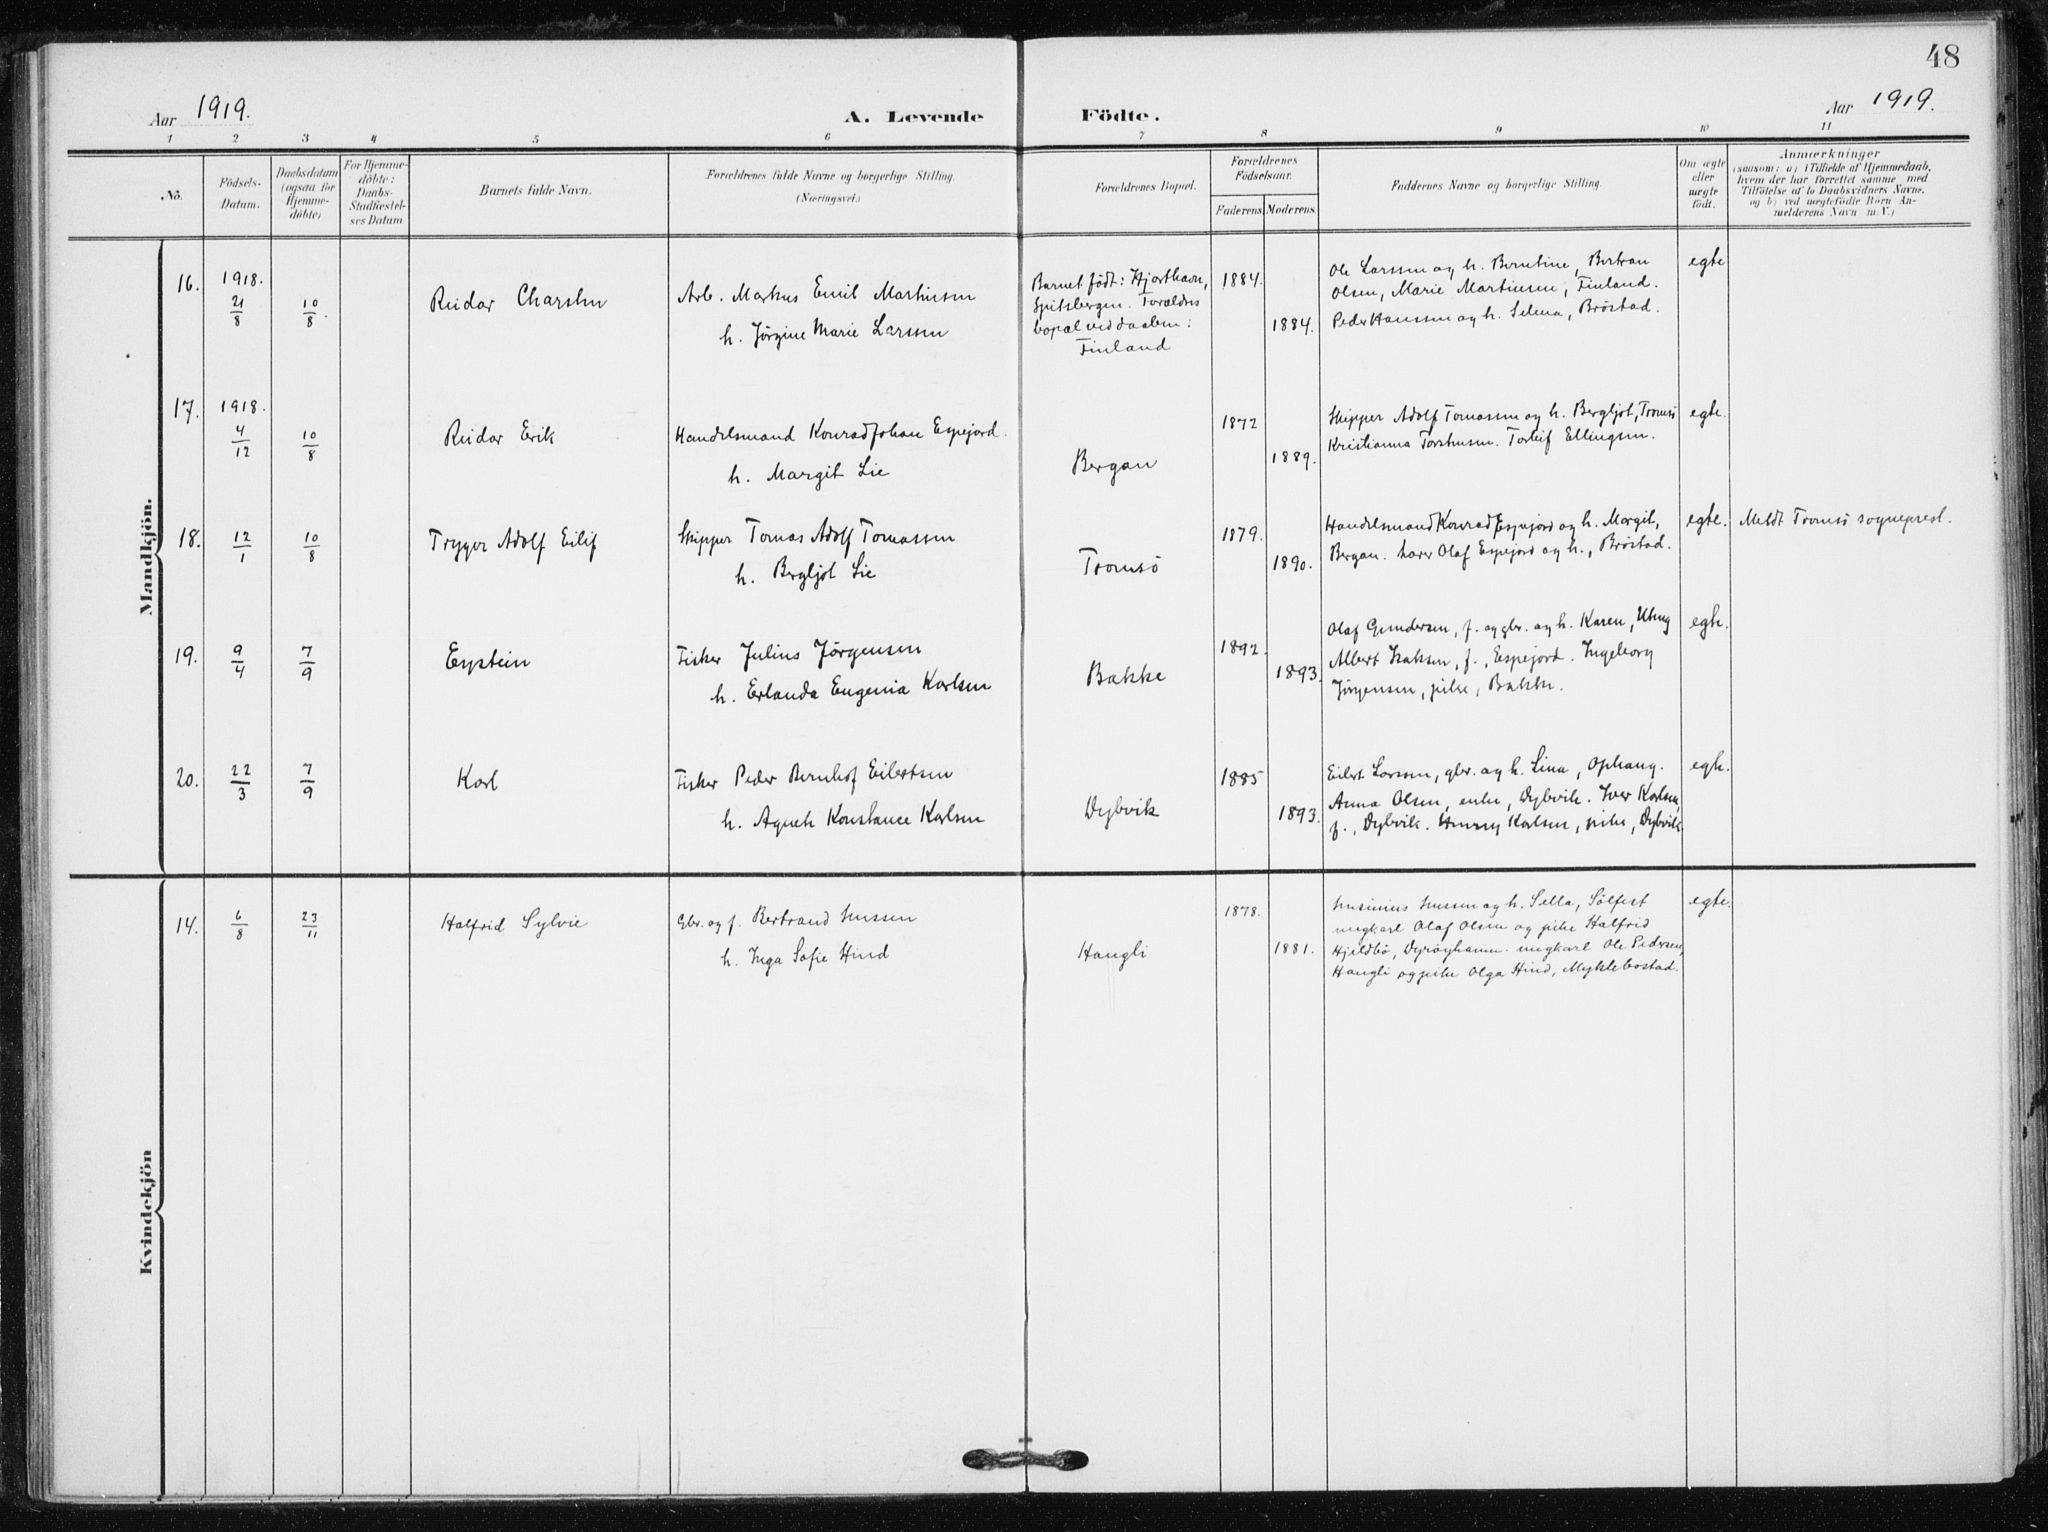 48
Aar 1919.
A. Levende Födte.
Aar 1919.
1 2 3 4 5 6 7 8 9 10 11
No.
Födsels-
Datum.
Daabsdatum
(ogsaa for
Hjemme-
döbte)
For Hjemme-
döbte:
Daabs-
Stadfæstel-
ses Datum
Barnets fulde Navn.
Forældrenes fulde Navne og borgerlige Stilling.
(Næringsvei.)
Forældrenes Bopæl.
Forældrenes
Födselsaar.
Faderens. Moderens.
Faddernes Navne og borgerlige Stilling.
Om ægte
eller
uægte
födt.
Anmærkninger
(saasom: a) i Tilfælde af Hjemmedaab,
hvem der har forrettet samme med
Tilföielse af to Daabsvidners Navne.
og b) ved uegtefödte Börn An-
melderens Navn m. V.)
Mandkjön.
16.
1918.
21/8
10/8.
Reidar
Arb. Markus Emil Martinsen
h. Jørgine Marie Larssen
Barnet født: Hjorthavn,
Spitsbergen. Forældres
bopæl ved daaben:
Finland
1884.
1884.
Ole Larssen og h. Berntine, Bertran
Olsen, Marie Martinsen, Finland.
Peder Hanssen og h. Selma, Brøstad.
egte
17.
1918.
4/12
10/8
Reidar Erik
Handelsmand Konrad Johan Espejord.
h. Margit Lie
Bergan
1872
1889.
Skipper Adolf Tomassen og h. Bergljot, Tromsö
Kristianna Torstensen. Torleif Ellingsen.
egte.
18.
12/1
10/8
Trygve Adolf Eilif
Skipper Tomas Adolf Tomassen
h. Bergljot Lie
Tromsö
1879.
1890.
Handelsmand Konrad Espejord og h. Margit,
Bergan. Lærer Olaf Espejord og h., Brøstad.
egte.
Meldt Tromsö sogneprest.
19.
9/4
7/9
Eystein
Fisker Julius Jørgensen
h. Erlanda Eugenia Karlsen
Bakke
1892.
1893.
Olaf Gundersen, f. og gbr. og h. Karen,
Albert Isaksen, f., Espejord. Ingeborg
Jørgensen, pike, Bakke.
egte.
20.
22/3
7/9
Karl
Fisker Peder Bernhof Eilertsen
h. Agnete Konstance Karlsen
Dybvik
1885
1893.
Eilert Larssen, gbr. og h. Lina, Ophaug.
Anna Olsen, enke, Dybvik. Iver Karlsen,
f., Dybvik. Henny Karlsen, pike, Dybvik
egte.
Kvindekjön
14.
6/8
23/11
Halfrid Sylvie
Gbr. og f. Bertrand Jenssen
h. Inga Sofie Hind
Haugli
1878.
1881.
Jenssen og h. Sella, Sölfest
ungkarl Olaf Olsen og pike Halfrid
Hjeldbö, Dyröyhamn. ungkarl Ole Pedersen,
Haugli og pike Olga Hind, Myklebostad.
egte.